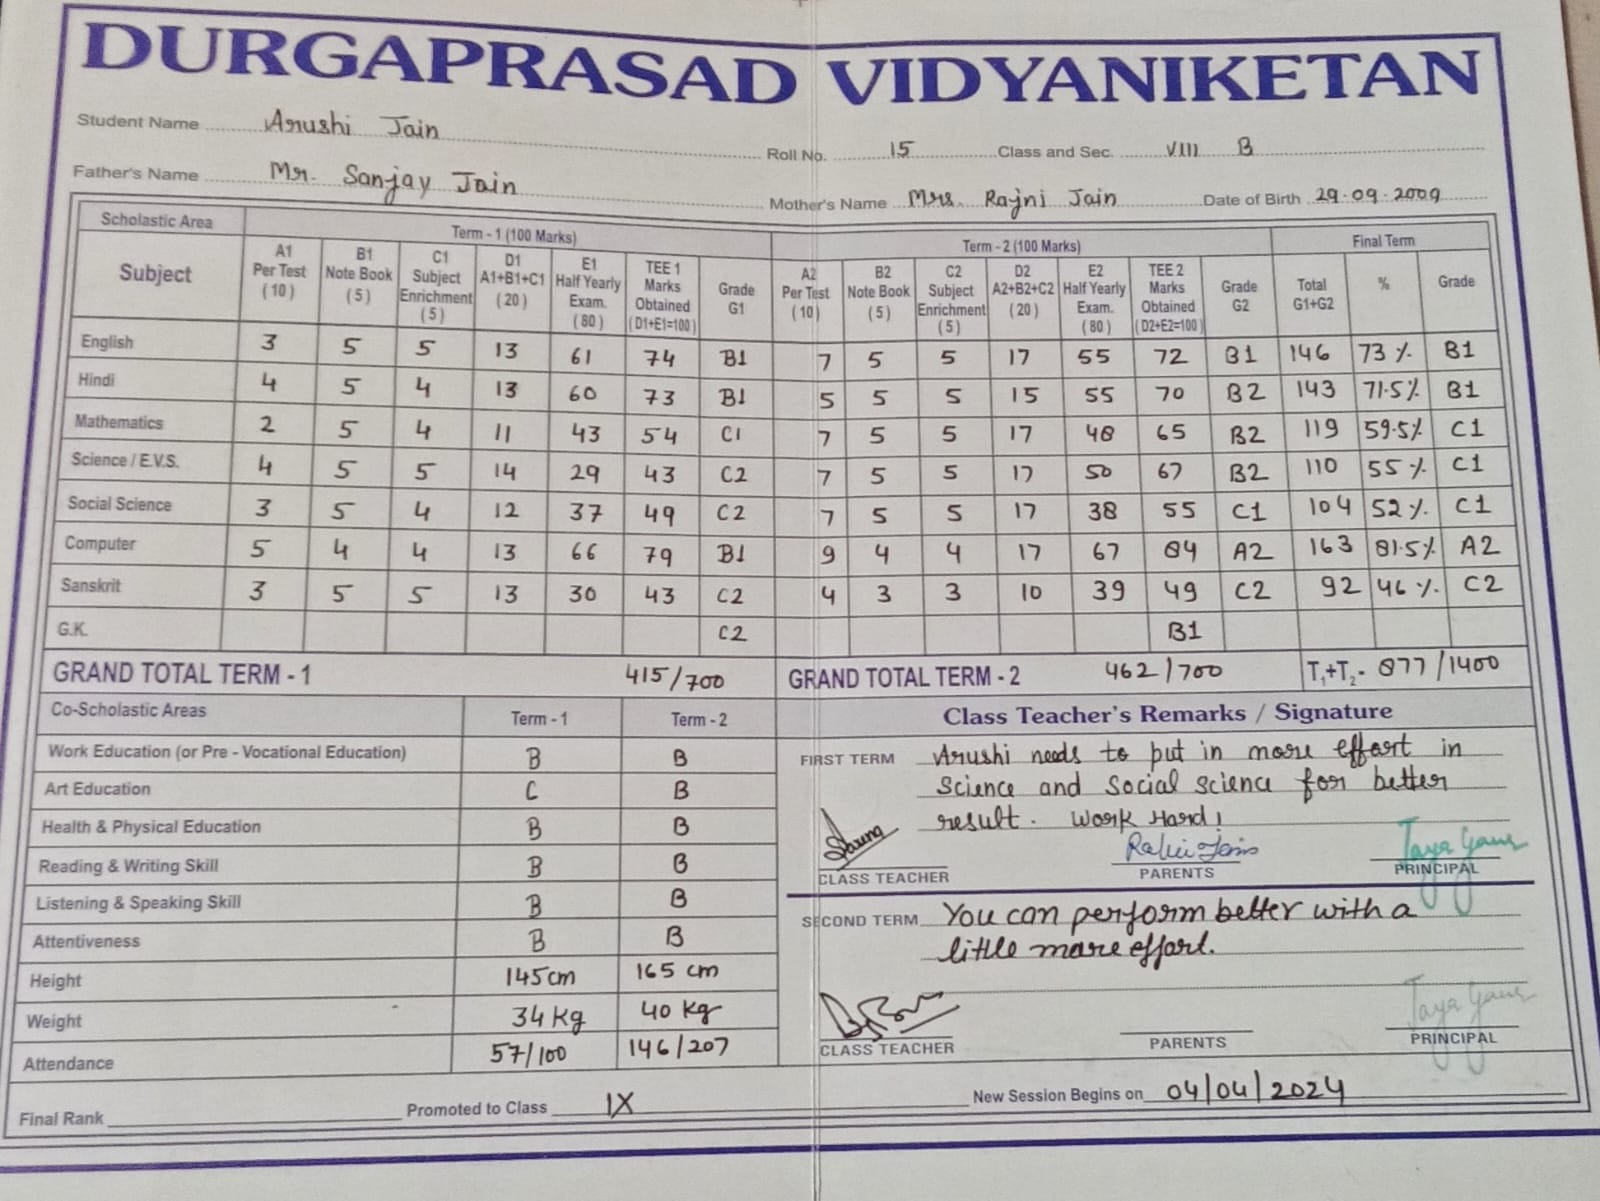 DURGAPRASAD VIDYANIKETAN
Student Name Arushi Jain Roll No. 15 Class and Sec. VIII B
Father's Name Mr. Sanjay Jain Mother's Name Mrs. Rajni Jain Date of Birth 29.09.2009
Scholastic Area Term - 1 (100 Marks) Term - 2 (100 Marks) Final Term
Subject A1 Per Test (10) B1 Note Book (5) C1 Subject Enrichment (5) D1 A1+B1+C1 (20) E1 Half Yearly Exam. (80) TEE 1 Marks Obtained (D1+E1=100) Grade G1 A2 Per Test (10) B2 Note Book (5) C2 Subject Enrichment (5) D2 A2+B2+C2 (20) E2 Half Yearly Exam. (80) TEE 2 Marks Obtained (D2+E2=100) Grade G2 Total G1+G2 % Grade
English 3 5 5 13 61 74 B1 7 5 5 17 55 72 B1 146 73 % B1
Hindi 4 5 4 13 60 73 B1 5 5 5 15 55 70 B2 143 71.5% B1
Mathematics 2 5 4 11 43 54 C1 7 5 5 17 48 65 B2 119 59.5% C1
Science / E.V.S. 4 5 5 14 29 43 C2 7 5 5 17 50 67 B2 110 55 % C1
Social Science 3 5 4 12 37 49 C2 7 5 5 17 38 55 C1 104 52 % C1
Computer 5 4 4 13 66 79 B1 9 4 4 17 67 84 A2 163 81.5% A2
Sanskrit 3 5 5 13 30 43 C2 4 3 3 10 39 49 C2 92 46 % C2
G.K. C2 B1
GRAND TOTAL TERM - 1 415/700 GRAND TOTAL TERM - 2 462/700 T1+T2- 877/1400
Co-Scholastic Areas Term - 1 Term - 2
Work Education (or Pre - Vocational Education) B B
Art Education C B
Health & Physical Education B B
Reading & Writing Skill B B
Listening & Speaking Skill B B
Attentiveness B B
Height 145cm 165 cm
Weight 34 Kg 40 Kg
Attendance 57/100 146/207
Class Teacher's Remarks / Signature
FIRST TERM Arushi needs to put in more effort in
Science and Social science for better
result. Work Hard!
Jaya Gaur
CLASS TEACHER PARENTS PRINCIPAL
SECOND TERM You can perform better with a
little more effort.
Jaya Gaur
CLASS TEACHER PARENTS PRINCIPAL
Final Rank Promoted to Class IX New Session Begins on 04/04/2024